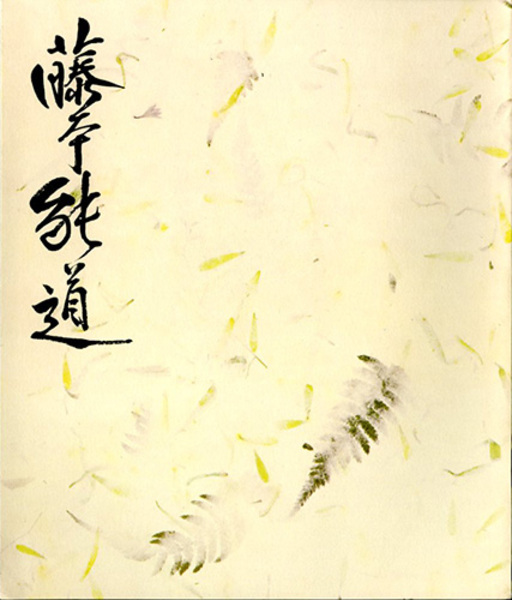 藤本能道